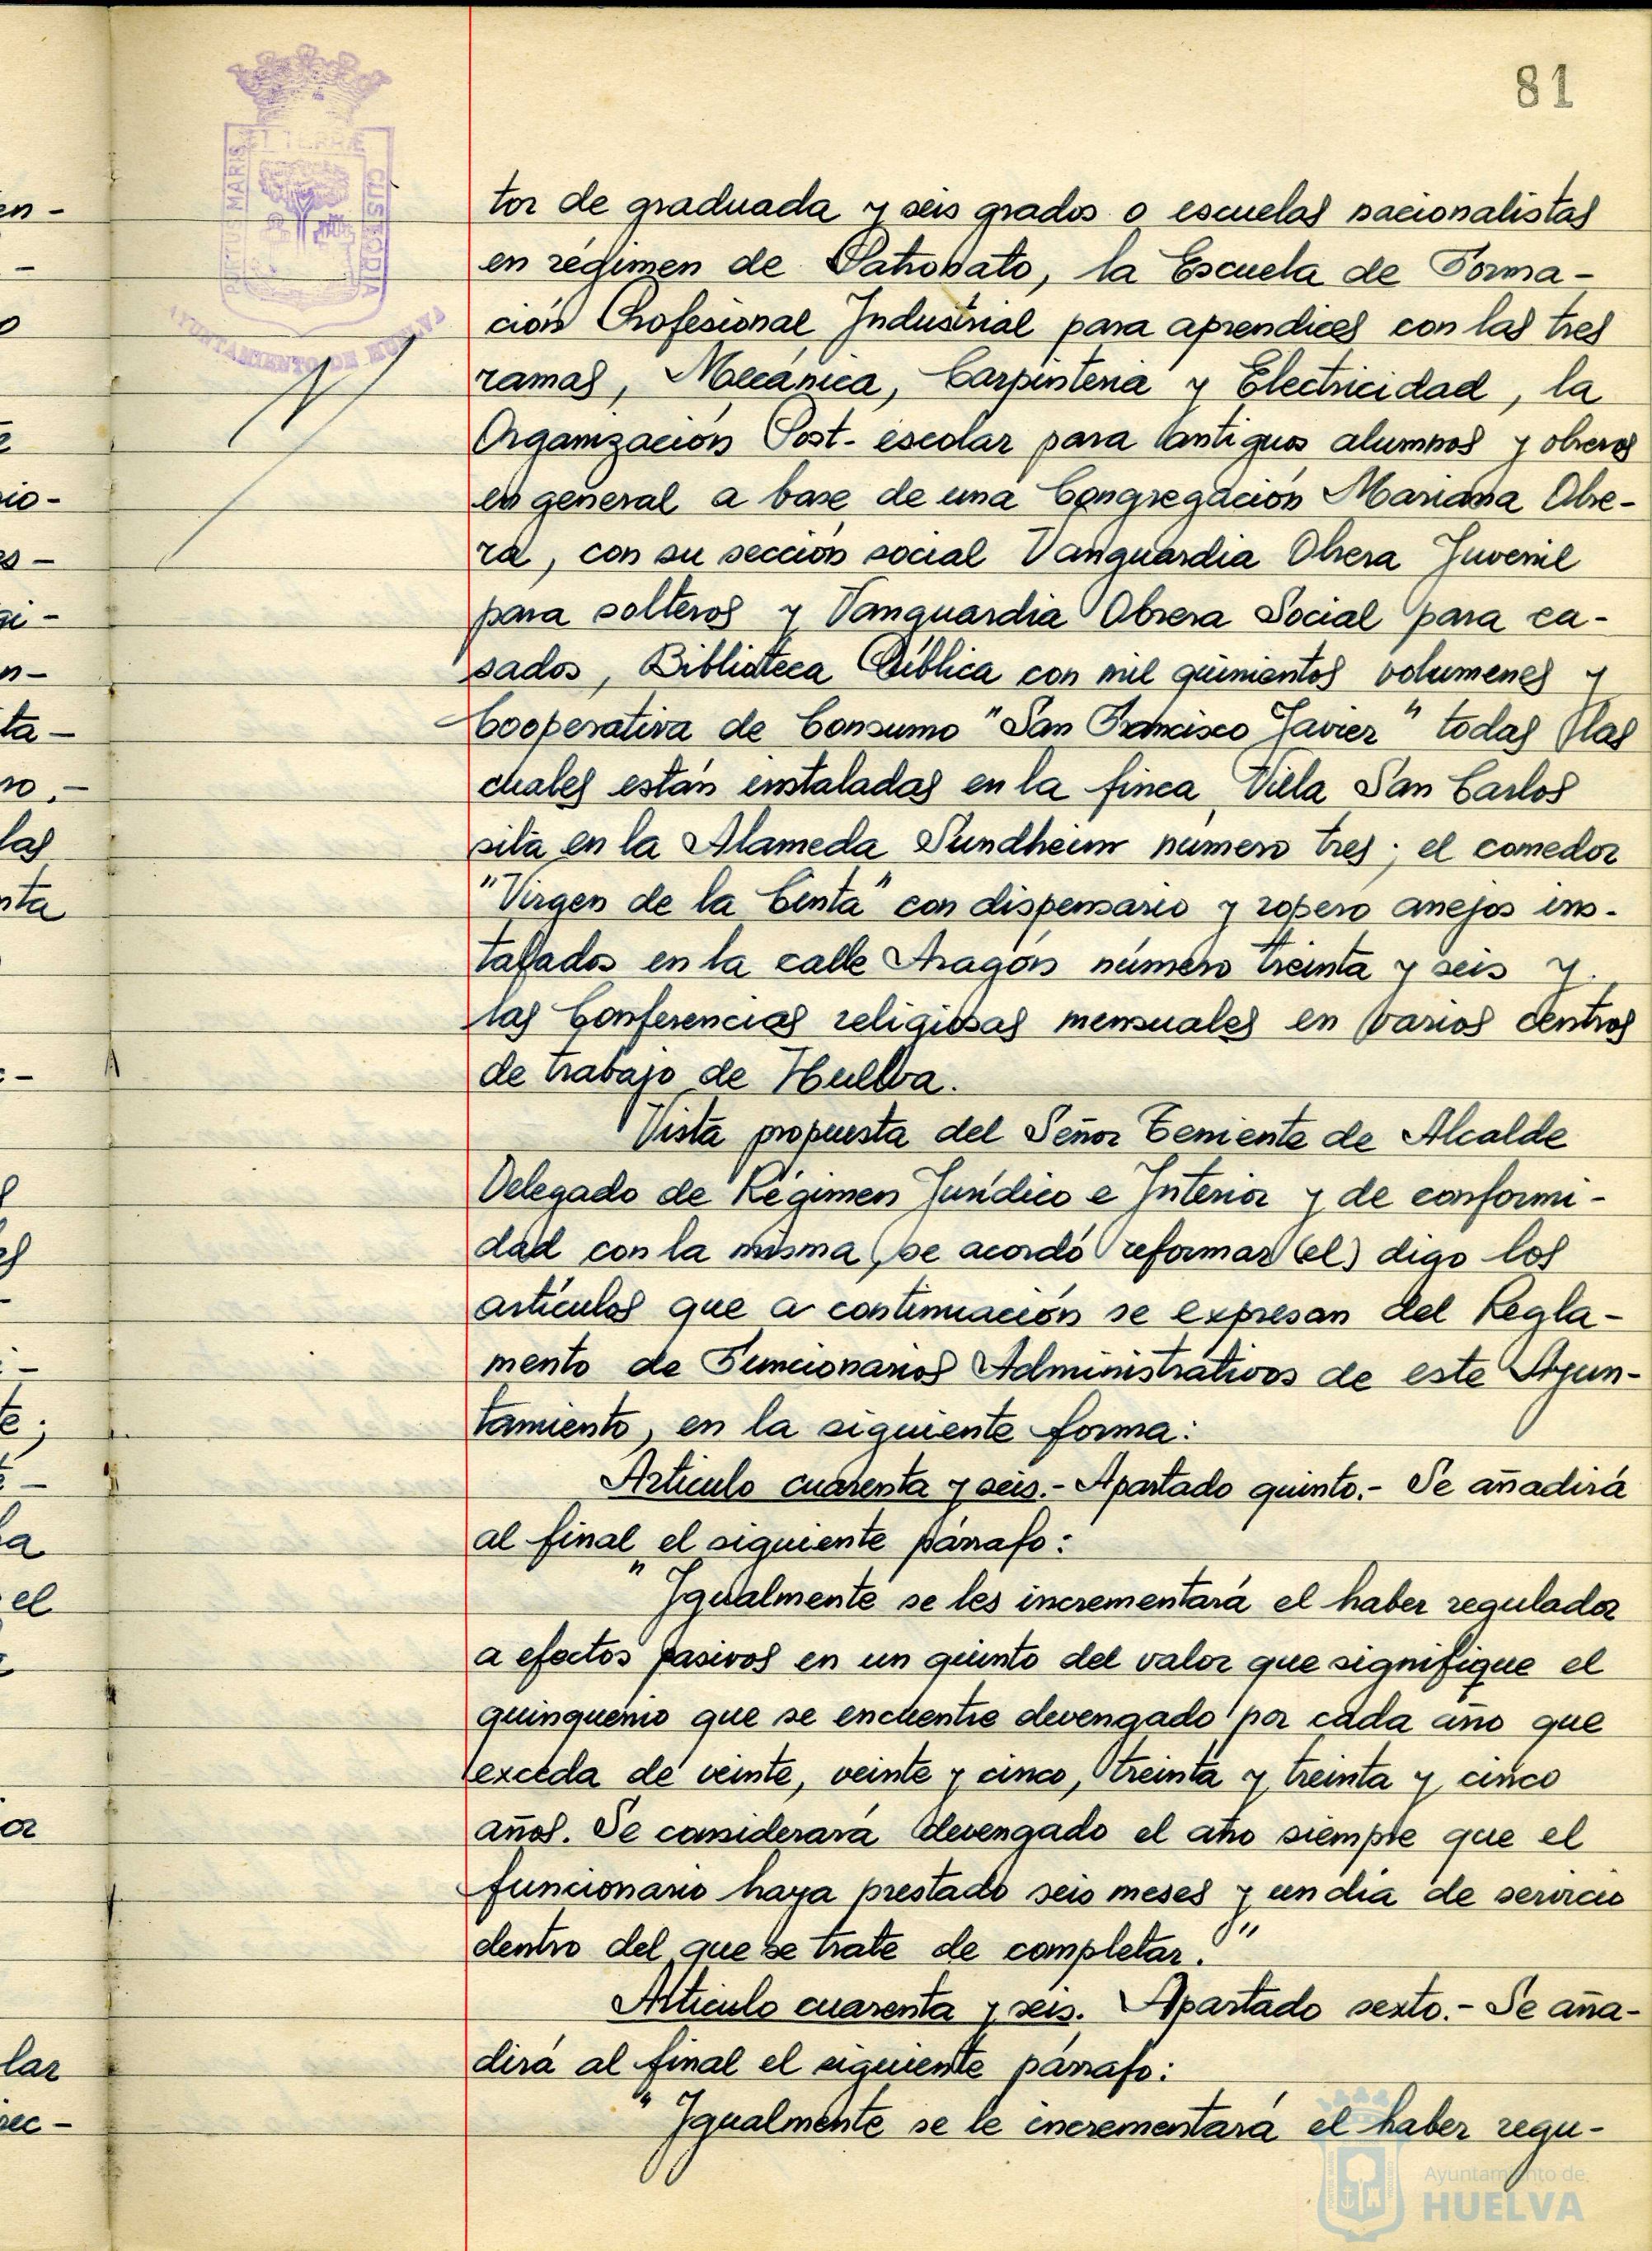 81
PORTUS MARIS ET TERRÆ CUSTODIA
AYUNTAMIENTO DE HUELVA
tor de graduada y seis grados o escuelas nacionalistas
en régimen de Patronato, la Escuela de Forma-
ción Profesional Industrial para aprendices con las tres
ramas, Mecánica, Carpinteria y Electricidad, la
Organización Post-escolar para antiguos alumnos y obreros
en general a base de una Congregación Mariana Obre-
ra, con su sección social Vanguardia Obrera Juvenil
para solteros y Vanguardia Obrera Social para ca-
sados, Biblioteca Pública con mil quinientos volumenes y
Cooperativa de Consumo "San Francisco Javier" todas las
cuales están instaladas en la finca Villa San Carlos
sita en la Alameda Sundheim número tres; el comedor
"Virgen de la Cinta" con dispensario y ropero anejos ins-
talados en la calle Aragón número treinta y seis y
las Conferencias religiosas mensuales en varios centros
de trabajo de Huelva.
Vista propuesta del Señor Teniente de Alcalde
Delegado de Régimen Jurídico e Interior y de conformi-
dad con la misma, se acordó reformar (el) digo los
artículos que a continuación se expresan del Regla-
mento de Funcionarios Administrativos de este Ayun-
tamiento, en la siguiente forma:
Articulo cuarenta y seis.- Apartado quinto.- Se añadirá
al final el siguiente párrafo:
"Igualmente se les incrementará el haber regulador
a efectos pasivos en un quinto del valor que signifique el
quinquenio que se encuentre devengado por cada año que
exceda de veinte, veinte y cinco, treinta y treinta y cinco
años. Se considerará devengado el año siempre que el
funcionario haya prestado seis meses y un dia de servicio
dentro del que se trate de completar."
Articulo cuarenta y seis. Apartado sexto.- Se aña-
dirá al final el siguiente párrafo:
"Igualmente se le incrementará el haber regu-
Ayuntamiento de
HUELVA